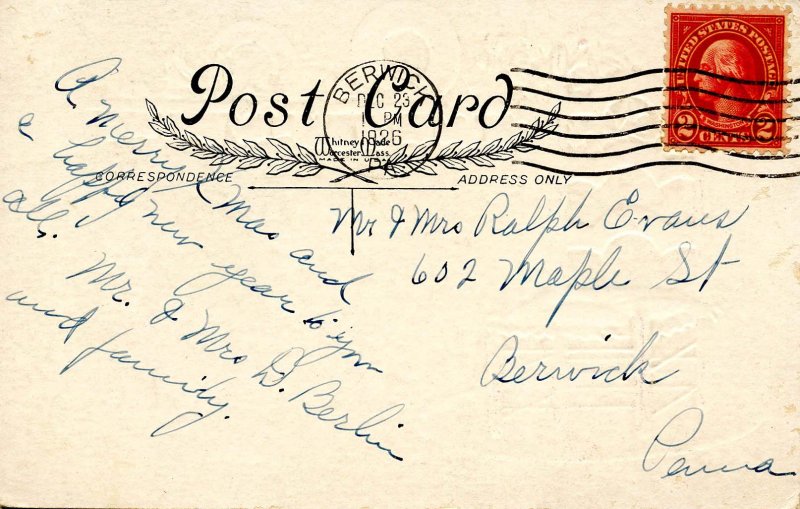 Post Card
BERWICK
DEC 23
PM
1926
PA.
UNITED STATES POSTAGE
2 CENTS 2
Whitney Made
Worcester, Mass.
MADE IN U.S.A.
CORRESPONDENCE
ADDRESS ONLY
A Merry Xmas and
a happy new year to you
all.
Mr. & Mrs D. Berlin
and family.
Mr & Mrs Ralph Evans
602 Maple St
Berwick
Penna